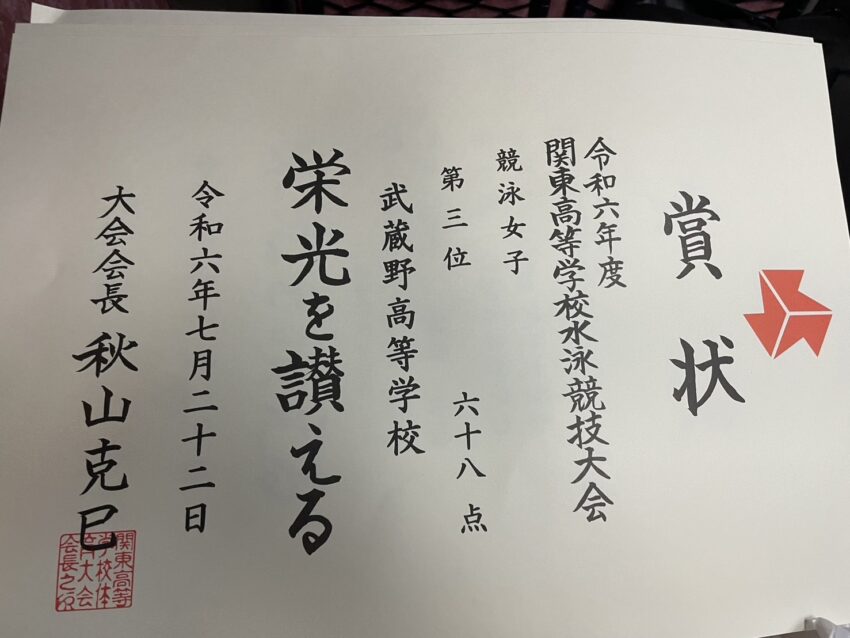 賞状
令和六年度
関東高等学校水泳競技大会
競泳女子
第三位 六十八点
武蔵野高等学校
栄光を讃える
令和六年七月二十二日
大会会長 秋山克巳
関東高等
学校体
育大会
会長之印